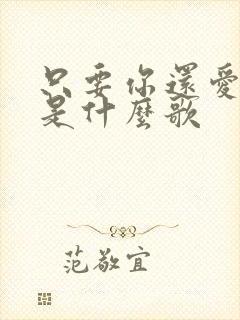 只要你還愛
是什麼歌
范敬宜